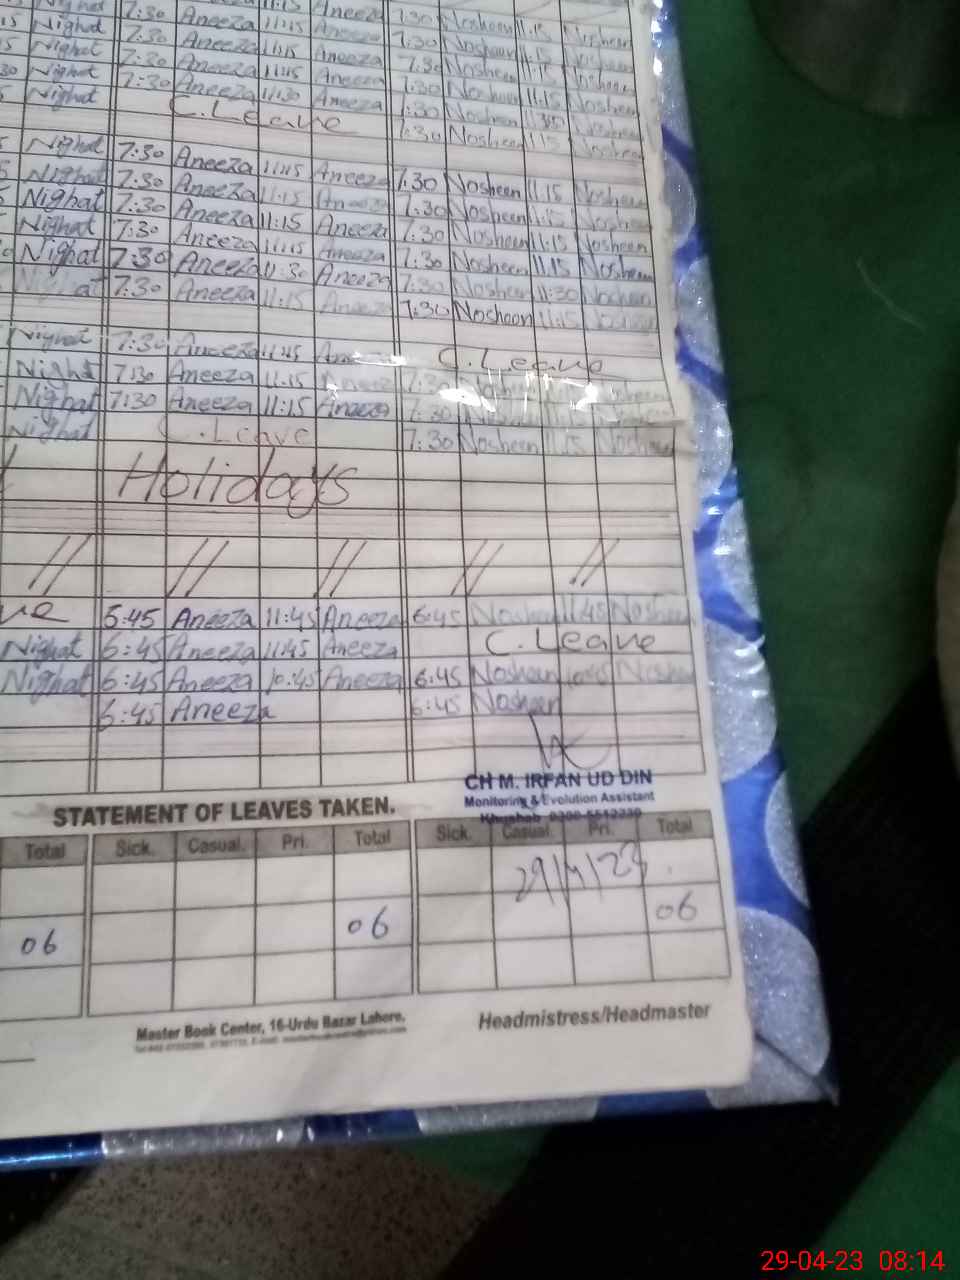 Nighat 7:30 Aneeza 11:15 Aneeza 7:30 Nosheen 11:15 Nosheen
Nighat 7:30 Aneeza 11:15 Aneeza 7:30 Nosheen 11:15 Nosheen
Nighat 7:30 Aneeza 11:15 Aneeza 7:30 Nosheen 11:15 Nosheen
Nighat 7:30 Aneeza 11:30 Aneeza 7:30 Nosheen Nosheen
Nighat C.Leave 7:30 Nosheen 11:15 Nosheen
Nighat 7:30 Aneeza 11:15 Aneeza 7:30 Nosheen 11:15 Nosheen
Nighat 7:30 Aneeza 11:15 Aneeza 7:30 Nosheen 11:15 Nosheen
Nighat 7:30 Aneeza 11:15 Aneeza 7:30 Nosheen 11:15 Nosheen
Nighat 7:30 Aneeza 11:15 Aneeza 7:30 Nosheen 11:15 Nosheen
Nighat 7:30 Aneeza 11:30 Aneeza 7:30 Nosheen 11:30 Nosheen
Nighat 7:30 Aneeza 11:15 Aneeza 7:30 Nosheen 11:15 Nosheen
Nighat 7:30 Aneeza 11:15 Aneeza C.Leave
Nighat 7:30 Aneeza 11:15 Aneeza 7:30 Nosheen
Nighat 7:30 Aneeza 11:15 Aneeza 7:30 Nosheen
Nighat C.Leave 7:30 Nosheen 11:15 Nosheen
Holidays
// // // // //
ve 6:45 Aneeza 11:45 Aneeza 6:45 Nosheen 11:45 Nosheen
Nighat 6:45 Aneeza 11:45 Aneeza C.Leave
Nighat 6:45 Aneeza 10:45 Aneeza 6:45 Nosheen 10:45 Nosheen
6:45 Aneeza 6:45 Nosheen
CH M. IRFAN UD DIN
Monitoring & Evolution Assistant
Khushab
STATEMENT OF LEAVES TAKEN.
Total Sick. Casual. Pri. Total Sick. Casual. Pri. Total
29/4/23
06 06 06
Master Book Center, 16-Urdu Bazar Lahore.
Headmistress/Headmaster
29-04-23 08:14